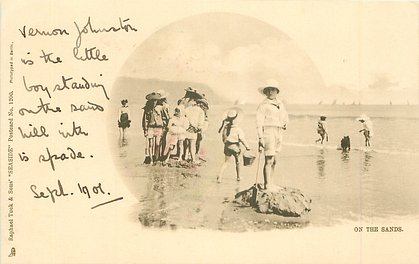 Vernon Johnston
is the little
boy standing
on the sand
hill with
is spade.
Sept. 1901.
ON THE SANDS.
Raphael Tuck & Sons' "SEASIDE" Postcard No. 1200.
Phototyped in Berlin.